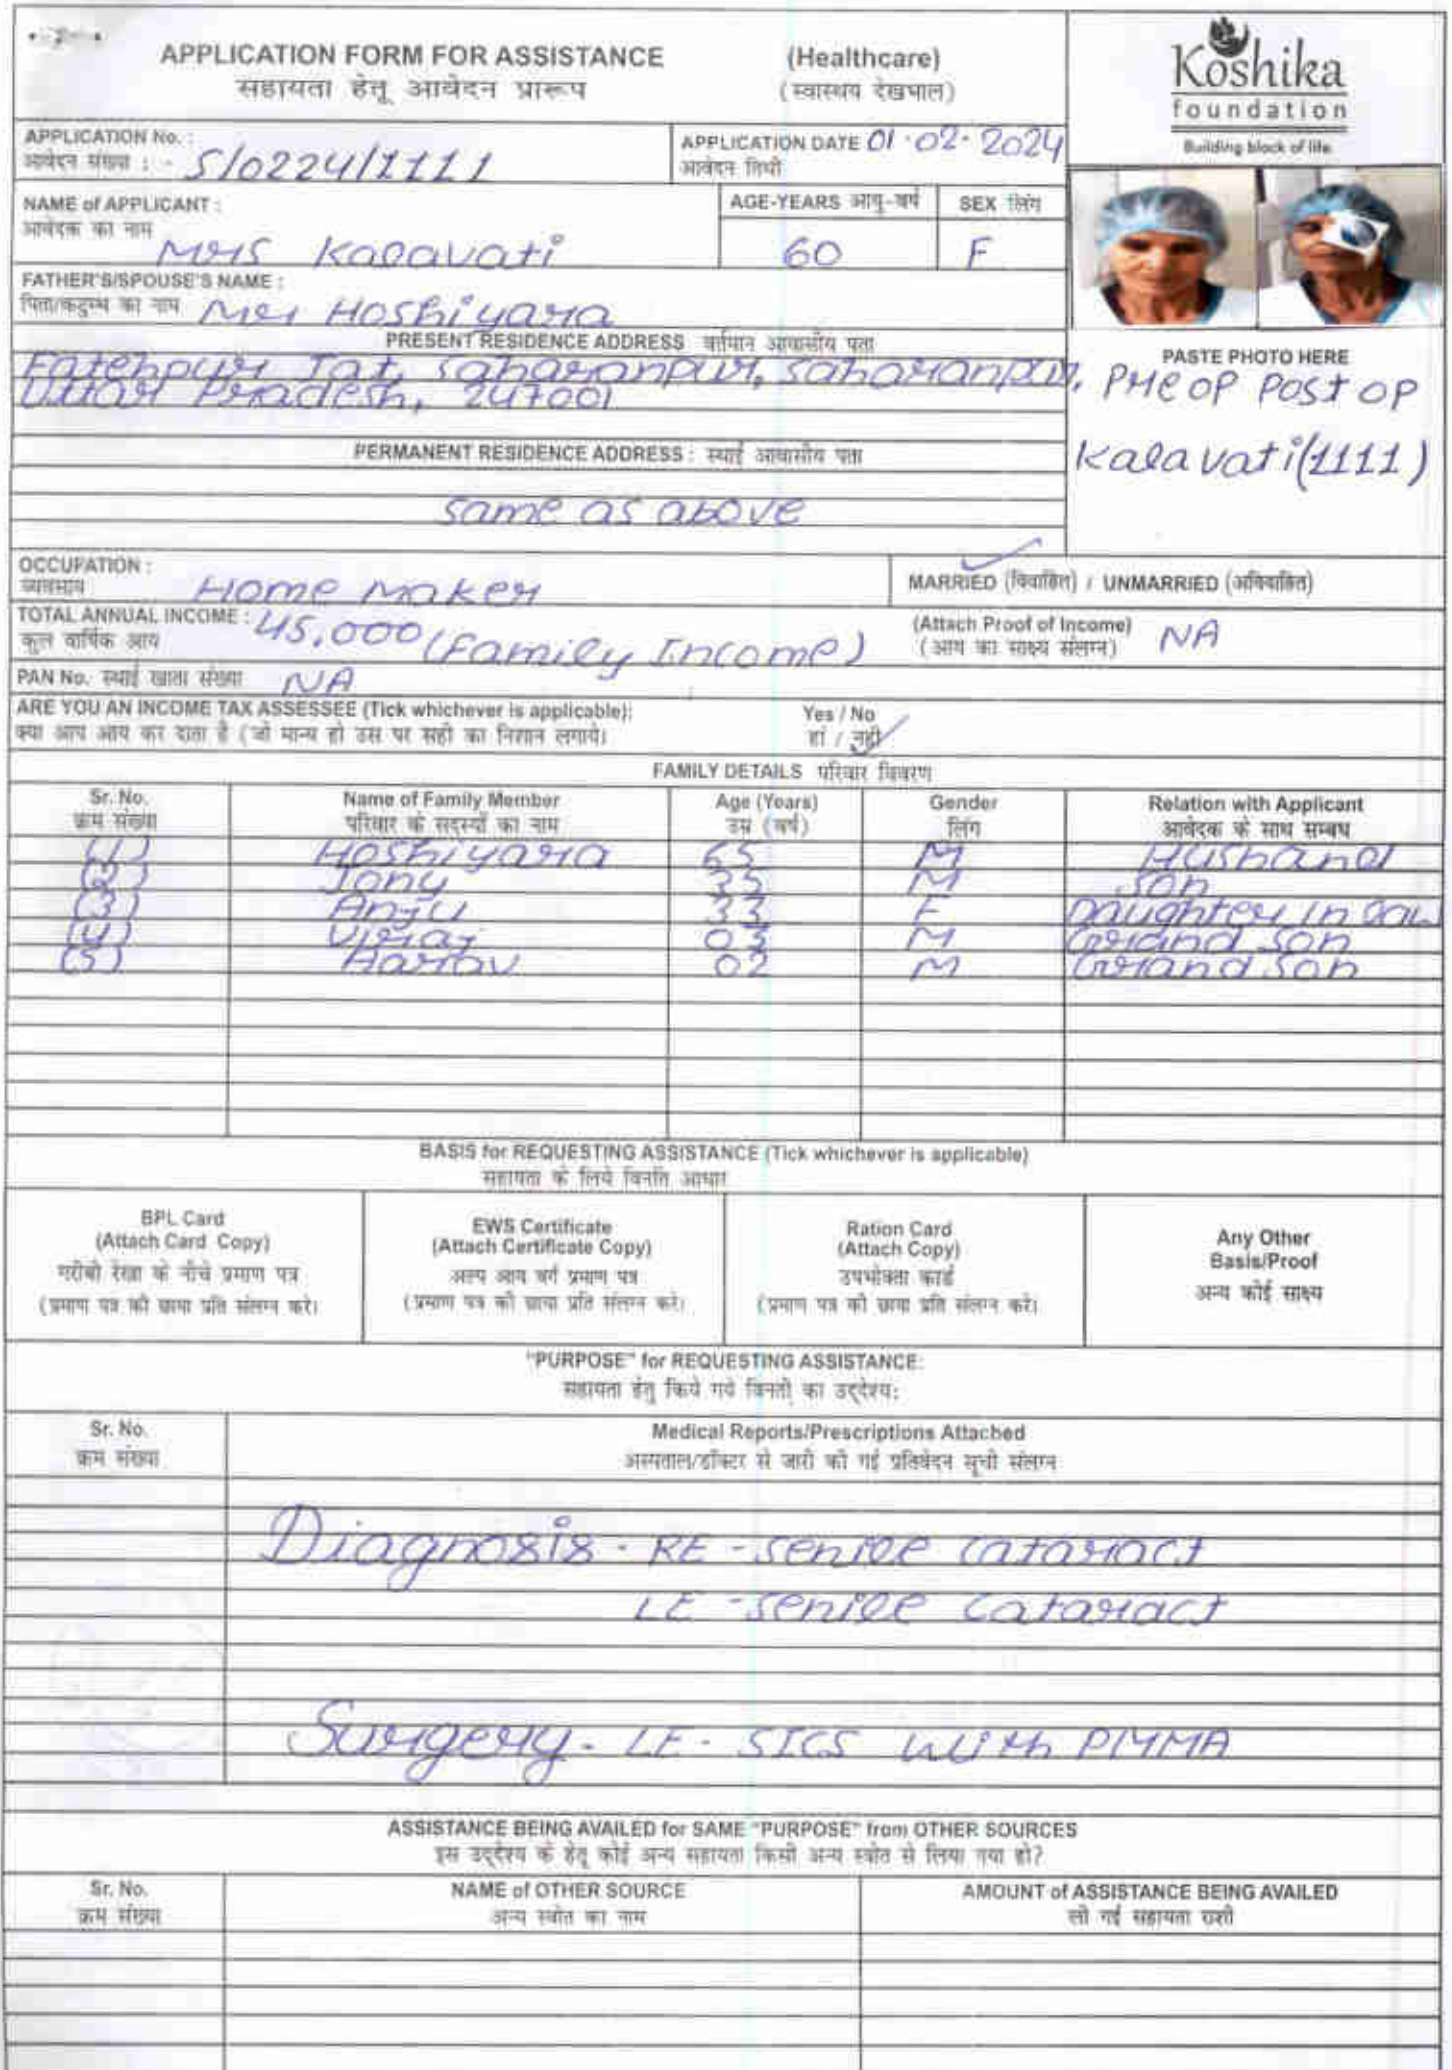 APPLICATION FORM FOR ASSISTANCE (Healthcare)
सहायता हेतू आवेदन प्रारूप (स्वास्थय देखभाल)
Koshika
foundation
Building block of life
APPLICATION No. :
आवेदन संख्या : S/0224/1111
APPLICATION DATE 01.02.2024
आवेदन तिथी
NAME of APPLICANT :
आवेदक का नाम
Mrs Kalavati
AGE-YEARS आयु-वर्ष
60
SEX लिंग
F
FATHER'S/SPOUSE'S NAME :
पिता/कटुम्ब का नाम Mr Hoshiyara
PRESENT RESIDENCE ADDRESS वर्तमान आवासीय पता
Fatehpur Jat, Saharanpur, Saharanpur,
Uttar Pradesh, 247001
PASTE PHOTO HERE
Pre OP Post OP
Kalavati (1111)
PERMANENT RESIDENCE ADDRESS : स्थाई आवासीय पता
same as above
OCCUPATION :
व्यवसाय Home maker
MARRIED (विवाहित) / UNMARRIED (अविवाहित)
TOTAL ANNUAL INCOME :
कुल वार्षिक आय 45,000 (Family Income)
(Attach Proof of Income)
(आय का साक्ष्य संलग्न) NA
PAN No. स्थाई खाता संख्या NA
ARE YOU AN INCOME TAX ASSESSEE (Tick whichever is applicable): Yes / No
क्या आप आय कर दाता है (जो मान्य हो उस पर सही का निशान लगाये। हां / नही
FAMILY DETAILS परिवार विवरण
Sr. No. Name of Family Member Age (Years) Gender Relation with Applicant
क्रम संख्या परिवार के सदस्यों का नाम उम्र (वर्ष) लिंग आवेदक के साथ सम्बध
(1) Hoshiyara 65 M Husband
(2) Jony 35 M Son
(3) Anju 33 F Daughter in law
(4) Viraj 03 M Grand Son
(5) Aarav 02 M Grand Son
BASIS for REQUESTING ASSISTANCE (Tick whichever is applicable)
सहायता के लिये विनति आधार
BPL Card
(Attach Card Copy)
गरीबी रेखा के नीचे प्रमाण पत्र
(प्रमाण पत्र की छाया प्रति संलग्न करे।
EWS Certificate
(Attach Certificate Copy)
अल्प आय वर्ग प्रमाण पत्र
(प्रमाण पत्र की छाया प्रति संलग्न करे।
Ration Card
(Attach Copy)
उपभोक्ता कार्ड
(प्रमाण पत्र की छाया प्रति संलग्न करे।
Any Other
Basis/Proof
अन्य कोई साक्ष्य
"PURPOSE" for REQUESTING ASSISTANCE:
सहायता हेतु किये गये विनती का उद्देश्य:
Sr. No. Medical Reports/Prescriptions Attached
क्रम संख्या अस्पताल/डॉक्टर से जारी की गई प्रतिवेदन सूची संलग्न
Diagnosis - RE - senile cataract
LE - senile cataract
Surgery - LE - SICS with PMMA
ASSISTANCE BEING AVAILED for SAME "PURPOSE" from OTHER SOURCES
इस उद्देश्य के हेतू कोई अन्य सहायता किसी अन्य स्त्रोत से लिया गया हो?
Sr. No. NAME of OTHER SOURCE AMOUNT of ASSISTANCE BEING AVAILED
क्रम संख्या अन्य स्त्रोत का नाम ली गई सहायता राशी